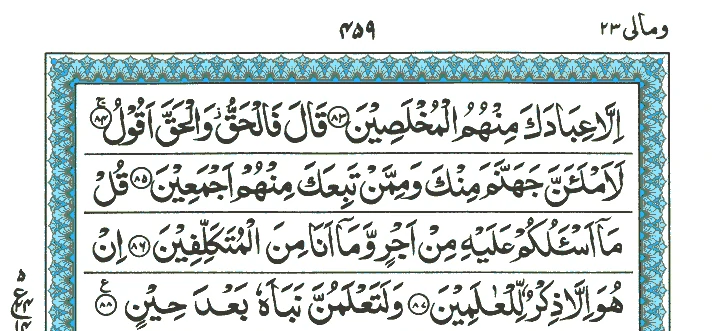 ومالی ۲۳
۴۵۹
اِلَّا عِبَادَكَ مِنْهُمُ الْمُخْلَصِيْنَ ۸۳ قَالَ فَالْحَقُّ ۫ وَالْحَقَّ اَقُوْلُ ۸۴
لَاَمْلَـَٔنَّ جَهَنَّمَ مِنْكَ وَمِمَّنْ تَبِعَكَ مِنْهُمْ اَجْمَعِيْنَ ۸۵ قُلْ
مَاۤ اَسْـَٔلُكُمْ عَلَيْهِ مِنْ اَجْرٍ وَّمَاۤ اَنَا مِنَ الْمُتَكَلِّفِيْنَ ۸۶ اِنْ
هُوَ اِلَّا ذِكْرٌ لِّلْعٰلَمِيْنَ ۸۷ وَلَتَعْلَمُنَّ نَبَاَهٗ بَعْدَ حِيْنٍ ۸۸
۵
ع
۲۴
۱۴